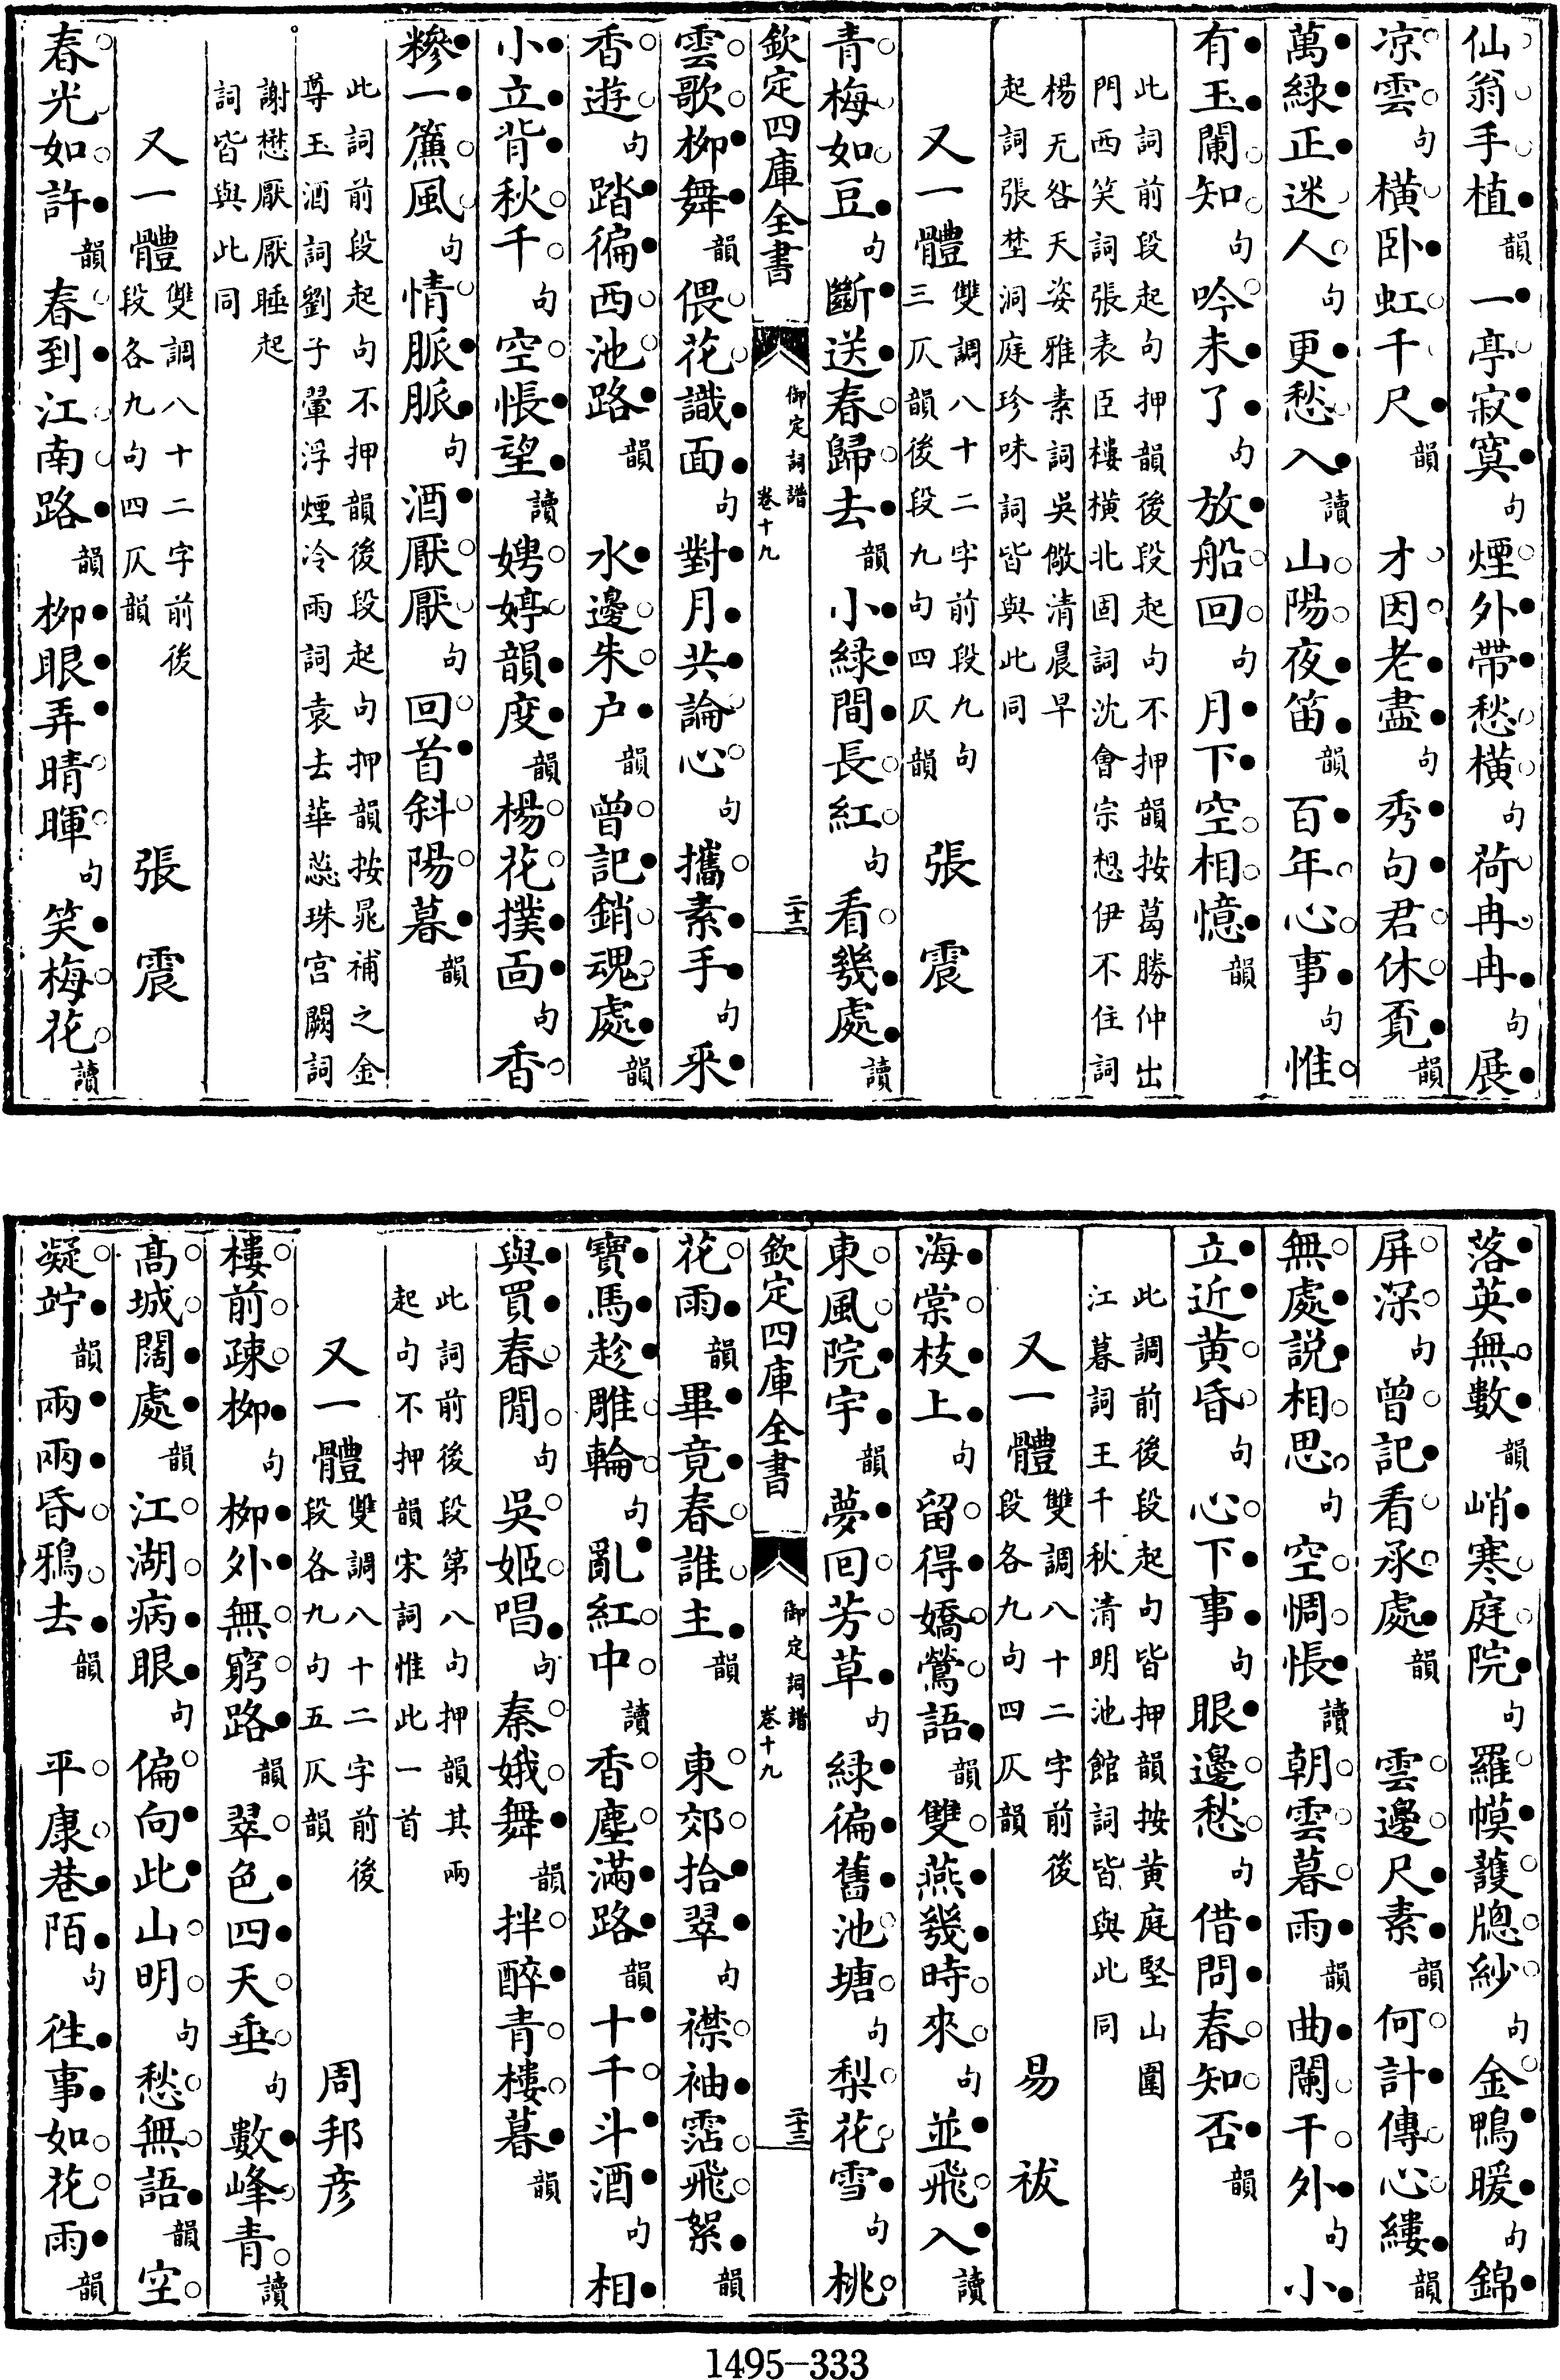 仙翁手植韻一亭寂寞句煙外帶愁橫句荷冉冉句展
凉雲句橫卧虹千尺韻才因老盡句秀句君休覔韻
萬緑正迷人句更愁入讀山陽夜笛韻百年心事句惟
有玉闌知句吟未了句放船回句月下空相憶韻
此詞前段起句押韻後段起句不押韻按葛勝仲出
門西笑詞張表臣樓橫北固詞沈會宗想伊不住詞
楊无咎天姿雅素詞吳儆清晨早
起詞張埜洞庭珍味詞皆與此同
又一體雙調八十二字前段九句
三仄韻後段九句四仄韻張震
青梅如豆句斷送春歸去韻小緑間長紅句看幾處讀
欽定四庫全書御定詞譜卷十九二十二
雲歌柳舞韻偎花識面句對月共論心句攜素手句采
香遊句踏徧西池路韻水邊朱户韻曾記銷魂處韻
小立背秋千句空悵望讀娉婷韻度韻楊花撲面句香
糝一簾風句情脈脈句酒厭厭句回首斜陽暮韻
此詞前段起句不押韻後段起句押韻按晁補之金
尊玉酒詞劉子翬浮煙冷雨詞袁去華蕊珠宫闕詞
謝懋厭厭睡起
詞皆與此同
又一體雙調八十二字前後
段各九句四仄韻張震
春光如許韻春到江南路韻柳眼弄晴暉句笑梅花讀
落英無數韻峭寒庭院句羅幙護牕紗句金鴨暖句錦
屏深句曾記看承處韻雲邊尺素韻何計傳心縷韻
無處説相思句空惆悵讀朝雲暮雨韻曲闌干外句小
立近黄昏句心下事句眼邊愁句借問春知否韻
此調前後段起句皆押韻按黄庭堅山圍
江暮詞王千秋清明池館詞皆與此同
又一體雙調八十二字前後
段各九句四仄韻易祓
海棠枝上句留得嬌鶯語韻雙燕幾時來句並飛入讀
東風院宇韻夢回芳草句緑徧舊池塘句梨花雪句桃
欽定四庫全書御定詞譜卷十九二十三
花雨韻畢竟春誰主韻東郊拾翠句襟袖霑飛絮韻
寶馬趁雕輪句亂紅中讀香塵滿路韻十千斗酒句相
與買春閒句吳姬唱句秦娥舞韻拌醉青樓暮韻
此詞前後段第八句押韻其兩
起句不押韻宋詞惟此一首
又一體雙調八十二字前後
段各九句五仄韻周邦彦
樓前疎柳句柳外無窮路韻翠色四天垂句數峰青讀
高城闊處韻江湖病眼句偏向此山明句愁無語韻空
凝竚韻兩兩昏鴉去韻平康巷陌句往事如花雨韻
1495-333